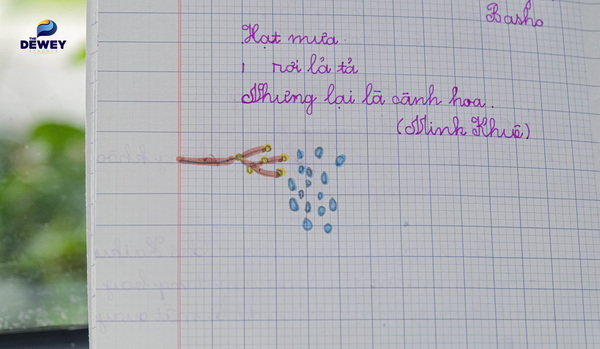 THE
DEWEY
Basho
Hạt mưa
rơi lả tả
Nhưng lại là cành hoa.
(Minh Khuê)